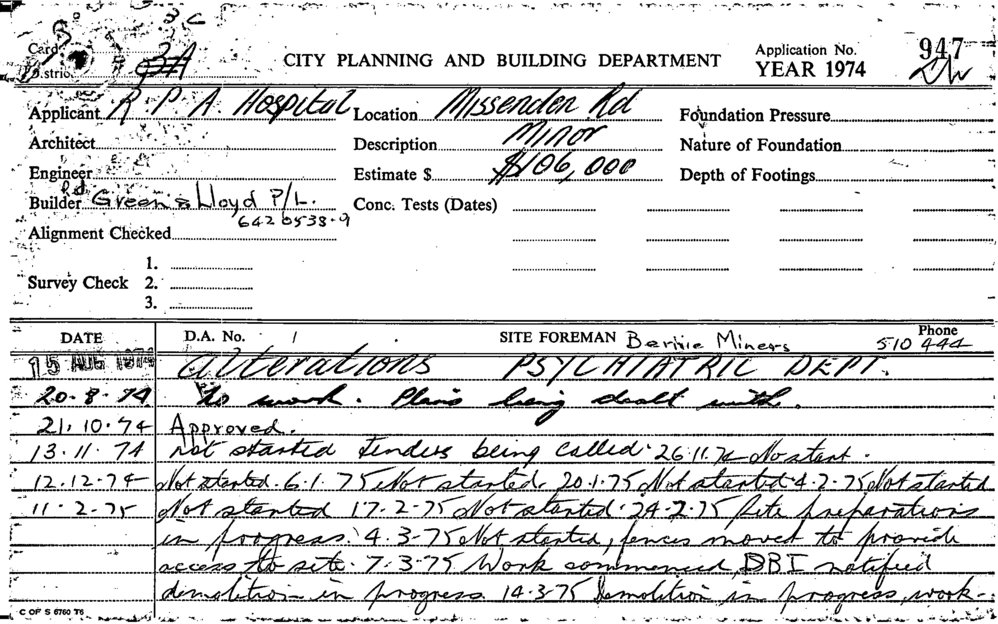 3C
Card 3
District 3A
CITY PLANNING AND BUILDING DEPARTMENT
Application No. 947
YEAR 1974
Applicant R. P. A. Hospital Location Missenden Rd Foundation Pressure
Architect Description Minor Nature of Foundation
Engineer Estimate $ $106,000 Depth of Footings
Builder Green & Lloyd P/L. Conc. Tests (Dates)
642 0538-9
Alignment Checked
1.
Survey Check 2.
3.
DATE D.A. No. 1 SITE FOREMAN Bernie Miners Phone 510 444
15 AUG 1974 Alterations PSYCHIATRIC DEPT.
20-8-74 No work. Plans being dealt with.
21.10.74 Approved.
13.11.74 not started tenders being called. 26.11.74 No start.
12.12.74 Not started. 6.1.75 Not started. 20.1.75 Not started. 4-2-75 Not started
11-2-75 Not started 17-2-75 Not started. 24-2-75 Site preparations
in progress. 4.3-75 Not started, fences moved to provide
access to site. 7.3.75 Work commenced, DBI notified
demolition in progress 14.3-75 Demolition in progress, work-
C OF S 6760 T6